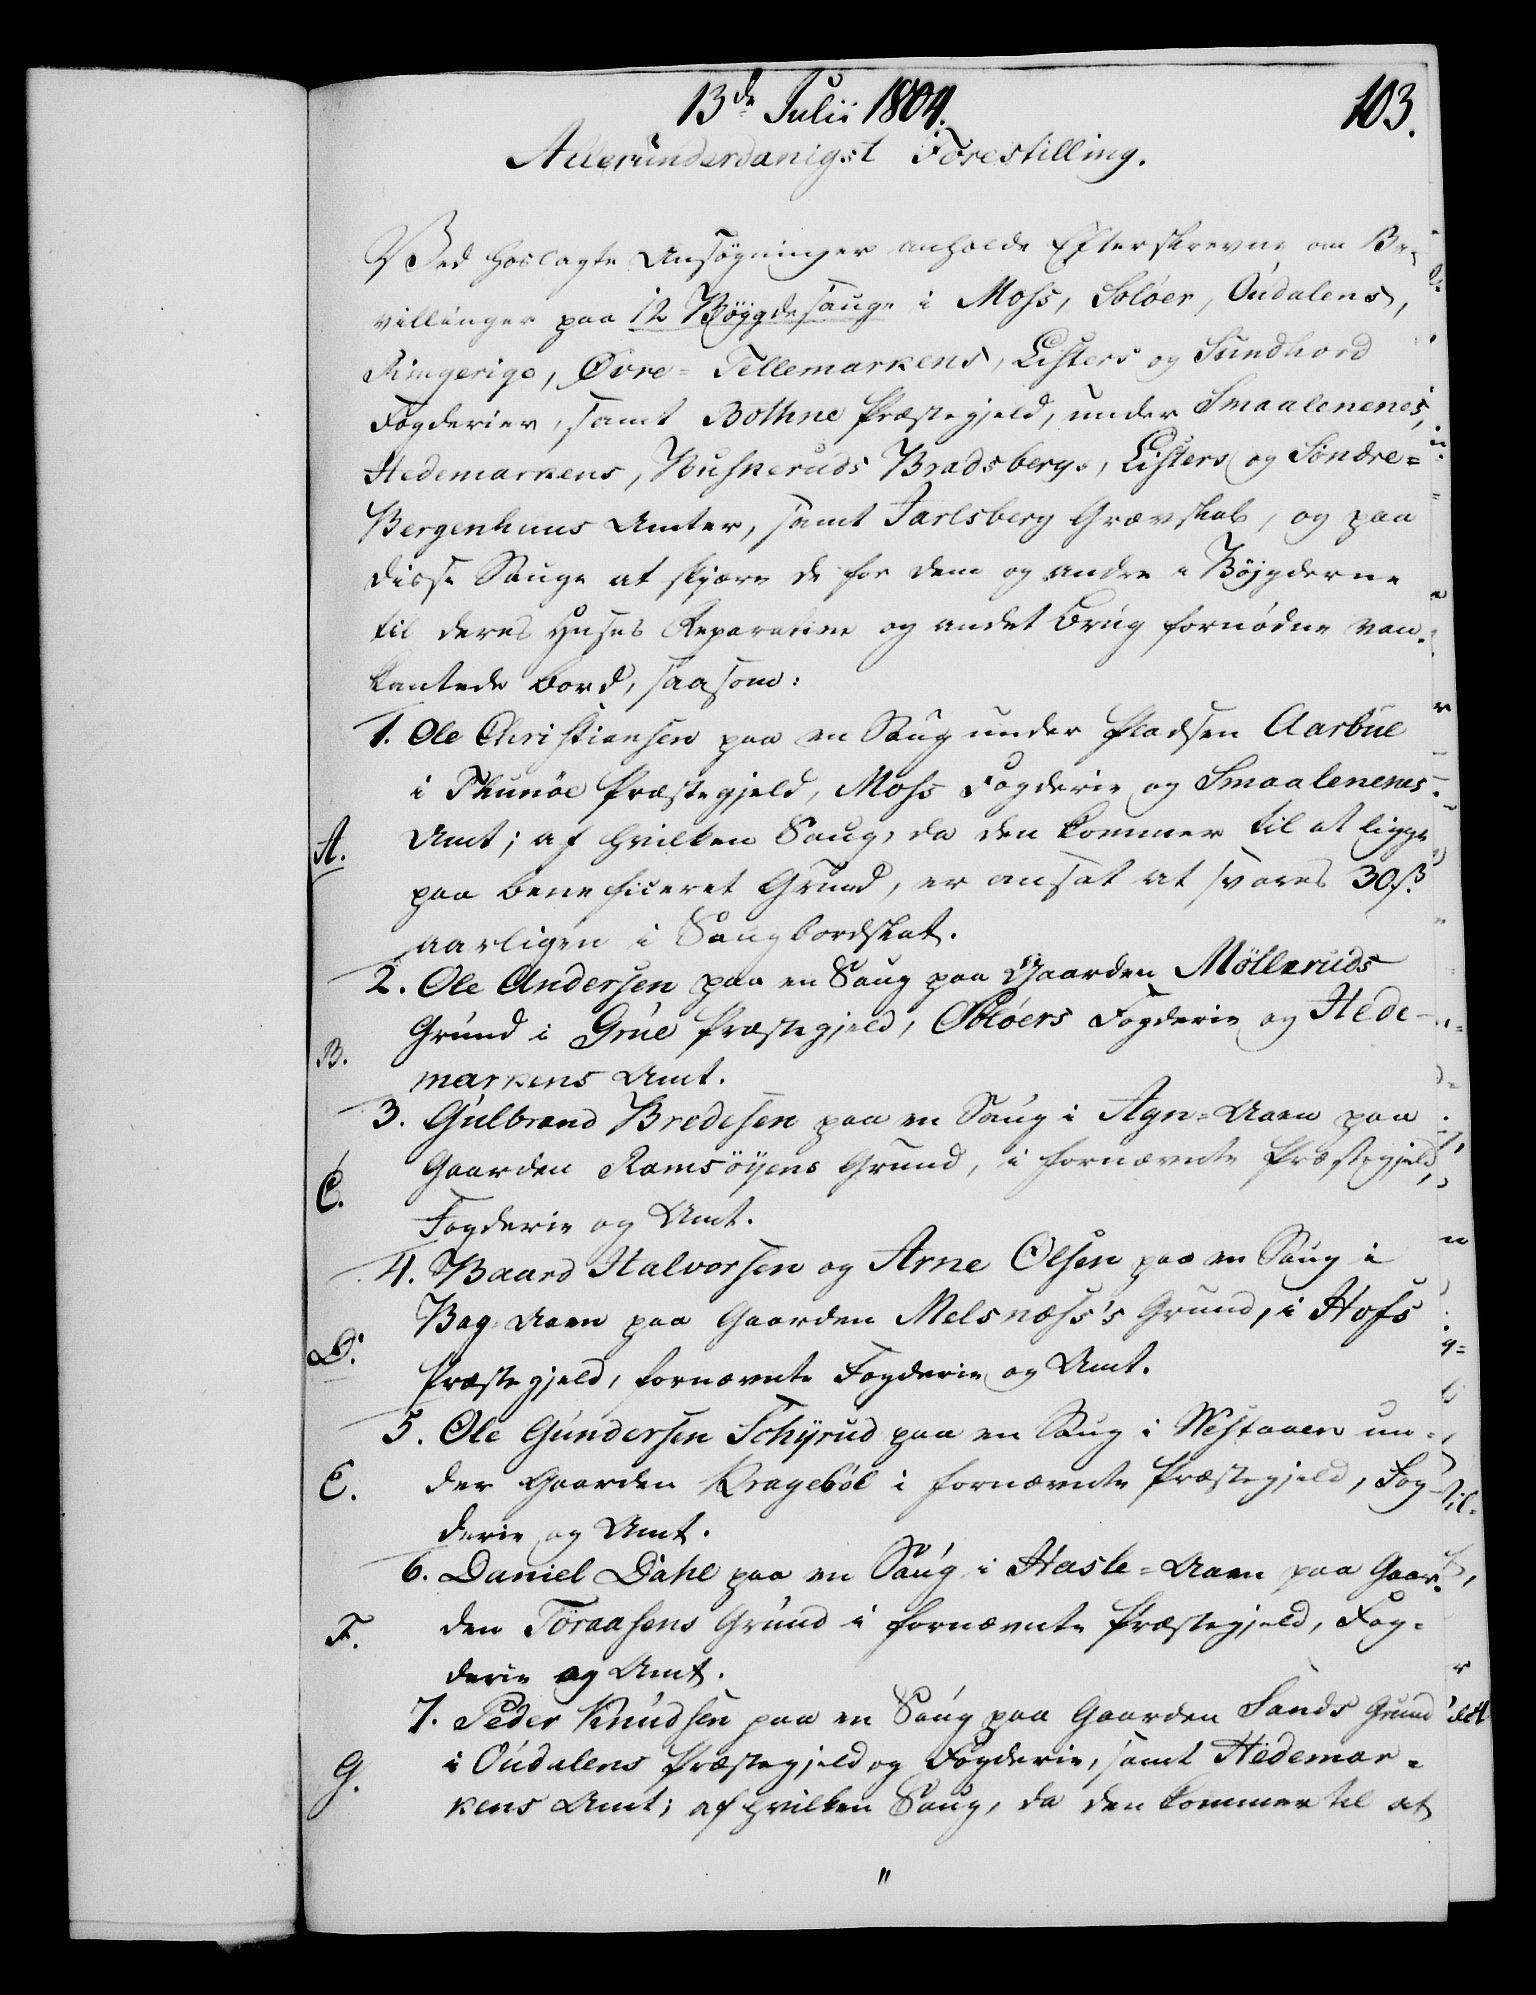 13de Julii 1804.
103.
Allerunderdanigst Forestilling.
Ved hoslagte Ansøgninger anholde Efterskrevne om Be-
villinger paa 12 Bøygdesauge i Moss, Soløer, Oudalens,
Ringerige, Øvre-Tellemarkens, Listers og Sundhord
Fogderier, samt Bothne Præstegjeld, under Smaalenenes,
Hedemarkens, Buskeruds Bradsberg, Listers og Søndre-
Bergenhuus Amter, samt Jarlsberg Grævskab, og paa
disse Sauge at skjære de for dem og andre i Bøjgderne
til deres Huses Reparation og andet Brug fornødne van-
kantede Bord, saasom:
1. Ole Christiensen paa en Saug under Pladsen Aarbue
i Thunøe Præstegjeld, Moss Fogderie og Smaalenenes
A. Amt; af hvilken Saug, da den kommer til at ligge
paa beneficeret Grund, er ansat at svares 30 ß
aarligen i Saugbordskat.
2. Ole Andersen paa en Saug paa Gaarden Mølleruds
Grund i Grue Præstegjeld, Soløers Fogderie og Hede-
B. markens Amt.
3. Gulbrand Bredesen paa en Saug i Agn-Aaen paa
C. Gaarden Ramsøyens Grund, i fornævnte Præstegjeld,
Fogderie og Amt.
4. Baard Halvorsen og Arne Olsen paa en Saug i
Bag-Aaen paa Gaarden Melsnæss's Grund, i Hofs
D. Præstegjeld, fornævnte Fogderie og Amt.
5. Ole Gundersen Schyrud paa en Saug i Westaaen un-
E. der Gaarden Kragebøl i fornævnte Præstegjeld, Fog-
derie og Amt.
6. Daniel Dahl paa en Saug i Hasle-Aaen paa Gaar-
F. den Toraasens Grund i fornævnte Præstegjeld, Fog-
derie og Amt.
7. Peder Knudsen paa en Saug paa Gaarden Sands Grund
G. i Oudalens Præstegjeld og Fogderie, samt Hedemar-
kens Amt; af hvilken Saug, da den kommer til at
"